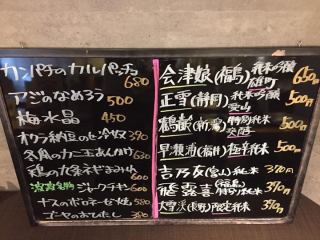 カンパチのカルパッチョ 680
アジのなめろう 500
梅水晶 450
オクラ納豆のせ冷奴 390
冬瓜のカニ玉あんかけ 630
鶏の九条ネギまみれ 600
波波名物 ジャークチキン 600
ナスのボロネーゼ焼 580
ゴーヤのおひたし 380
会津娘(福島) 純米吟醸 雄町 650円
正雪(静岡) 純米吟醸 愛山 500円
鶴齢(新潟) 特別純米 500円
早瀬浦(福井) 純米 500円
吉乃友(富山) 純米 370円
飛露喜(福島) 特別純米 390円
大雪渓(長野) 特別純米 390円